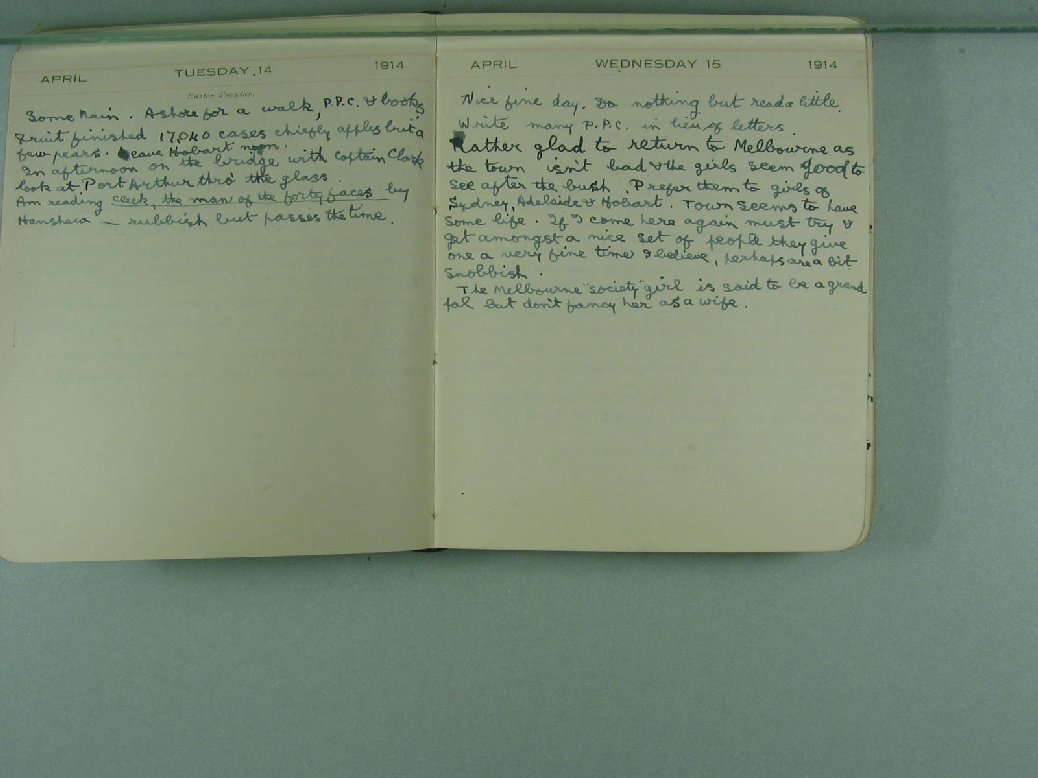 APRIL TUESDAY, 14 1914
Easter Tuesday.
Some Rain. Ashore for a walk, P.P.C. & books
Fruit finished 17,040 cases chiefly apples but a
few pears. Leave Hobart noon.
In afternoon on the bridge with Captain Clark
look at Port Arthur thro' the glass.
Am reading Cleek, the man of the forty faces by
Hanshew — rubbish but passes the time.
APRIL WEDNESDAY 15 1914
Nice fine day. Do nothing but read a little.
Write many P.P.C. in lieu of letters.
Rather glad to return to Melbourne as
the town isn't bad & the girls seem good to
see after the bush. Prefer them to girls of
Sydney, Adelaide & Hobart. Town seems to have
some life. If I come here again must try &
get amongst a nice set of people they give
one a very fine time I believe, perhaps are a bit
snobbish.
The Melbourne "society" girl is said to be a grand
pal but don't fancy her as a wife.